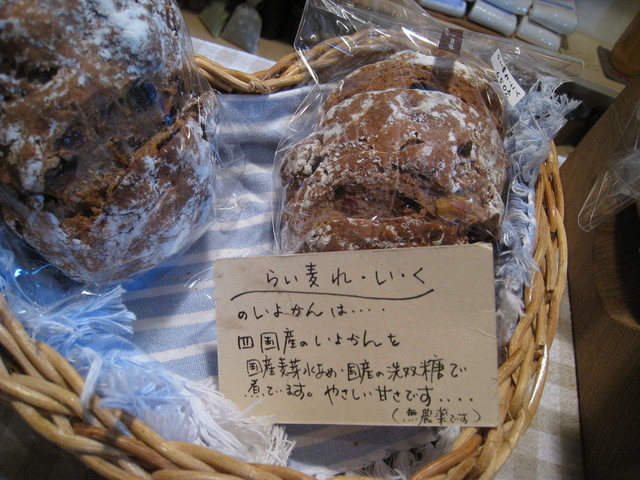 らい麦れ・い・く
のいよかんは・・・・
四国産のいよかんを
国産麦芽水あめ・国産の洗双糖で
煮ています。やさしい甘さです・・・・
(無農薬です)